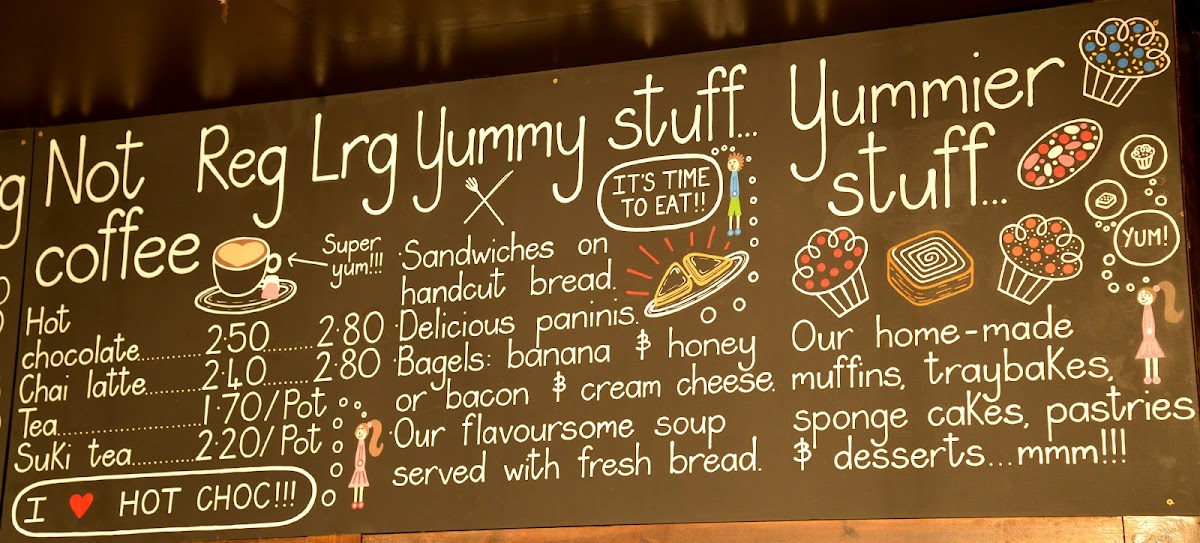 rg
Not
coffee
Reg Lrg
Super
yum!!!
Hot
chocolate..........2·50..........2·80
Chai latte.........2·40.......2·80
Tea.......................1·70/Pot
Suki tea...........2·20/Pot
I ♥ HOT CHOC!!!
Yummy stuff...
IT'S TIME
TO EAT!!
·Sandwiches on
handcut bread.
·Delicious paninis.
·Bagels: banana & honey
or bacon & cream cheese.
·Our flavoursome soup
served with fresh bread.
Yummier
stuff...
YUM!
Our home-made
muffins, traybakes,
sponge cakes, pastries
& desserts...mmm!!!